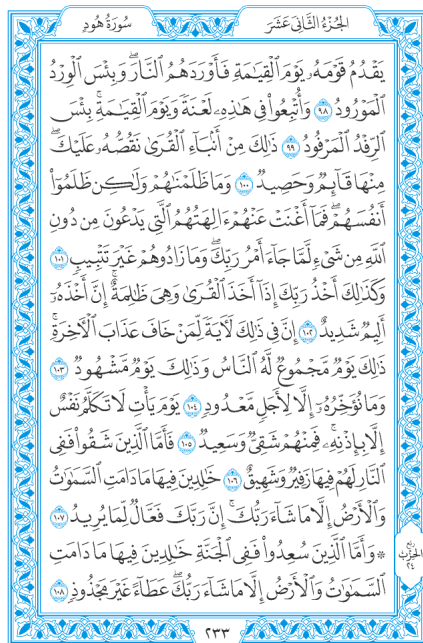 الجُزْءُ الثَّانِي عَشَرَ
سُورَةُ هُودٍ
يَقْدُمُ قَوْمَهُۥ يَوْمَ ٱلْقِيَٰمَةِ فَأَوْرَدَهُمُ ٱلنَّارَۖ وَبِئْسَ ٱلْوِرْدُ
ٱلْمَوْرُودُ ٩٨ وَأُتْبِعُوا۟ فِى هَٰذِهِۦ لَعْنَةً وَيَوْمَ ٱلْقِيَٰمَةِۚ بِئْسَ
ٱلرِّفْدُ ٱلْمَرْفُودُ ٩٩ ذَٰلِكَ مِنْ أَنۢبَآءِ ٱلْقُرَىٰ نَقُصُّهُۥ عَلَيْكَۖ
مِنْهَا قَآئِمٌ وَحَصِيدٌ ١٠٠ وَمَا ظَلَمْنَٰهُمْ وَلَٰكِن ظَلَمُوٓا۟
أَنفُسَهُمْۖ فَمَآ أَغْنَتْ عَنْهُمْ ءَالِهَتُهُمُ ٱلَّتِى يَدْعُونَ مِن دُونِ
ٱللَّهِ مِن شَىْءٍ لَّمَّا جَآءَ أَمْرُ رَبِّكَۖ وَمَا زَادُوهُمْ غَيْرَ تَتْبِيبٍ ١٠١
وَكَذَٰلِكَ أَخْذُ رَبِّكَ إِذَآ أَخَذَ ٱلْقُرَىٰ وَهِىَ ظَٰلِمَةٌۚ إِنَّ أَخْذَهُۥٓ
أَلِيمٌ شَدِيدٌ ١٠٢ إِنَّ فِى ذَٰلِكَ لَءَايَةً لِّمَنْ خَافَ عَذَابَ ٱلْءَاخِرَةِۚ
ذَٰلِكَ يَوْمٌ مَّجْمُوعٌ لَّهُ ٱلنَّاسُ وَذَٰلِكَ يَوْمٌ مَّشْهُودٌ ١٠٣
وَمَا نُؤَخِّرُهُۥٓ إِلَّا لِأَجَلٍ مَّعْدُودٍ ١٠٤ يَوْمَ يَأْتِ لَا تَكَلَّمُ نَفْسٌ
إِلَّا بِإِذْنِهِۦۚ فَمِنْهُمْ شَقِىٌّ وَسَعِيدٌ ١٠٥ فَأَمَّا ٱلَّذِينَ شَقُوا۟ فَفِى
ٱلنَّارِ لَهُمْ فِيهَا زَفِيرٌ وَشَهِيقٌ ١٠٦ خَٰلِدِينَ فِيهَا مَا دَامَتِ ٱلسَّمَٰوَٰتُ
وَٱلْأَرْضُ إِلَّا مَا شَآءَ رَبُّكَۚ إِنَّ رَبَّكَ فَعَّالٌ لِّمَا يُرِيدُ ١٠٧
* وَأَمَّا ٱلَّذِينَ سُعِدُوا۟ فَفِى ٱلْجَنَّةِ خَٰلِدِينَ فِيهَا مَا دَامَتِ
ٱلسَّمَٰوَٰتُ وَٱلْأَرْضُ إِلَّا مَا شَآءَ رَبُّكَۖ عَطَآءً غَيْرَ مَجْذُوذٍ ١٠٨
ربع
الحزب
٢٤
٢٣٣